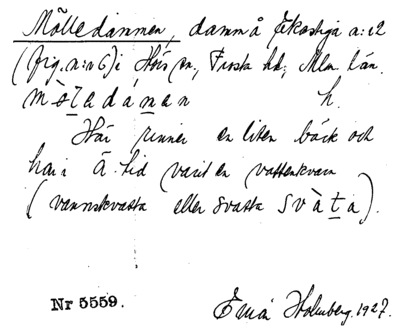 Mölledammen, damm å Ekoshga a:12
(fig. n:o 6) i Hörs sn, Frosta hd, Mlm län.
mö̀ladámen h.
Här rinner en liten bäck och
har i Ä. tid varit en vattenkvarn
(vannskvatta eller svatta svàta).
Nr 5559. Holmberg. 1927.